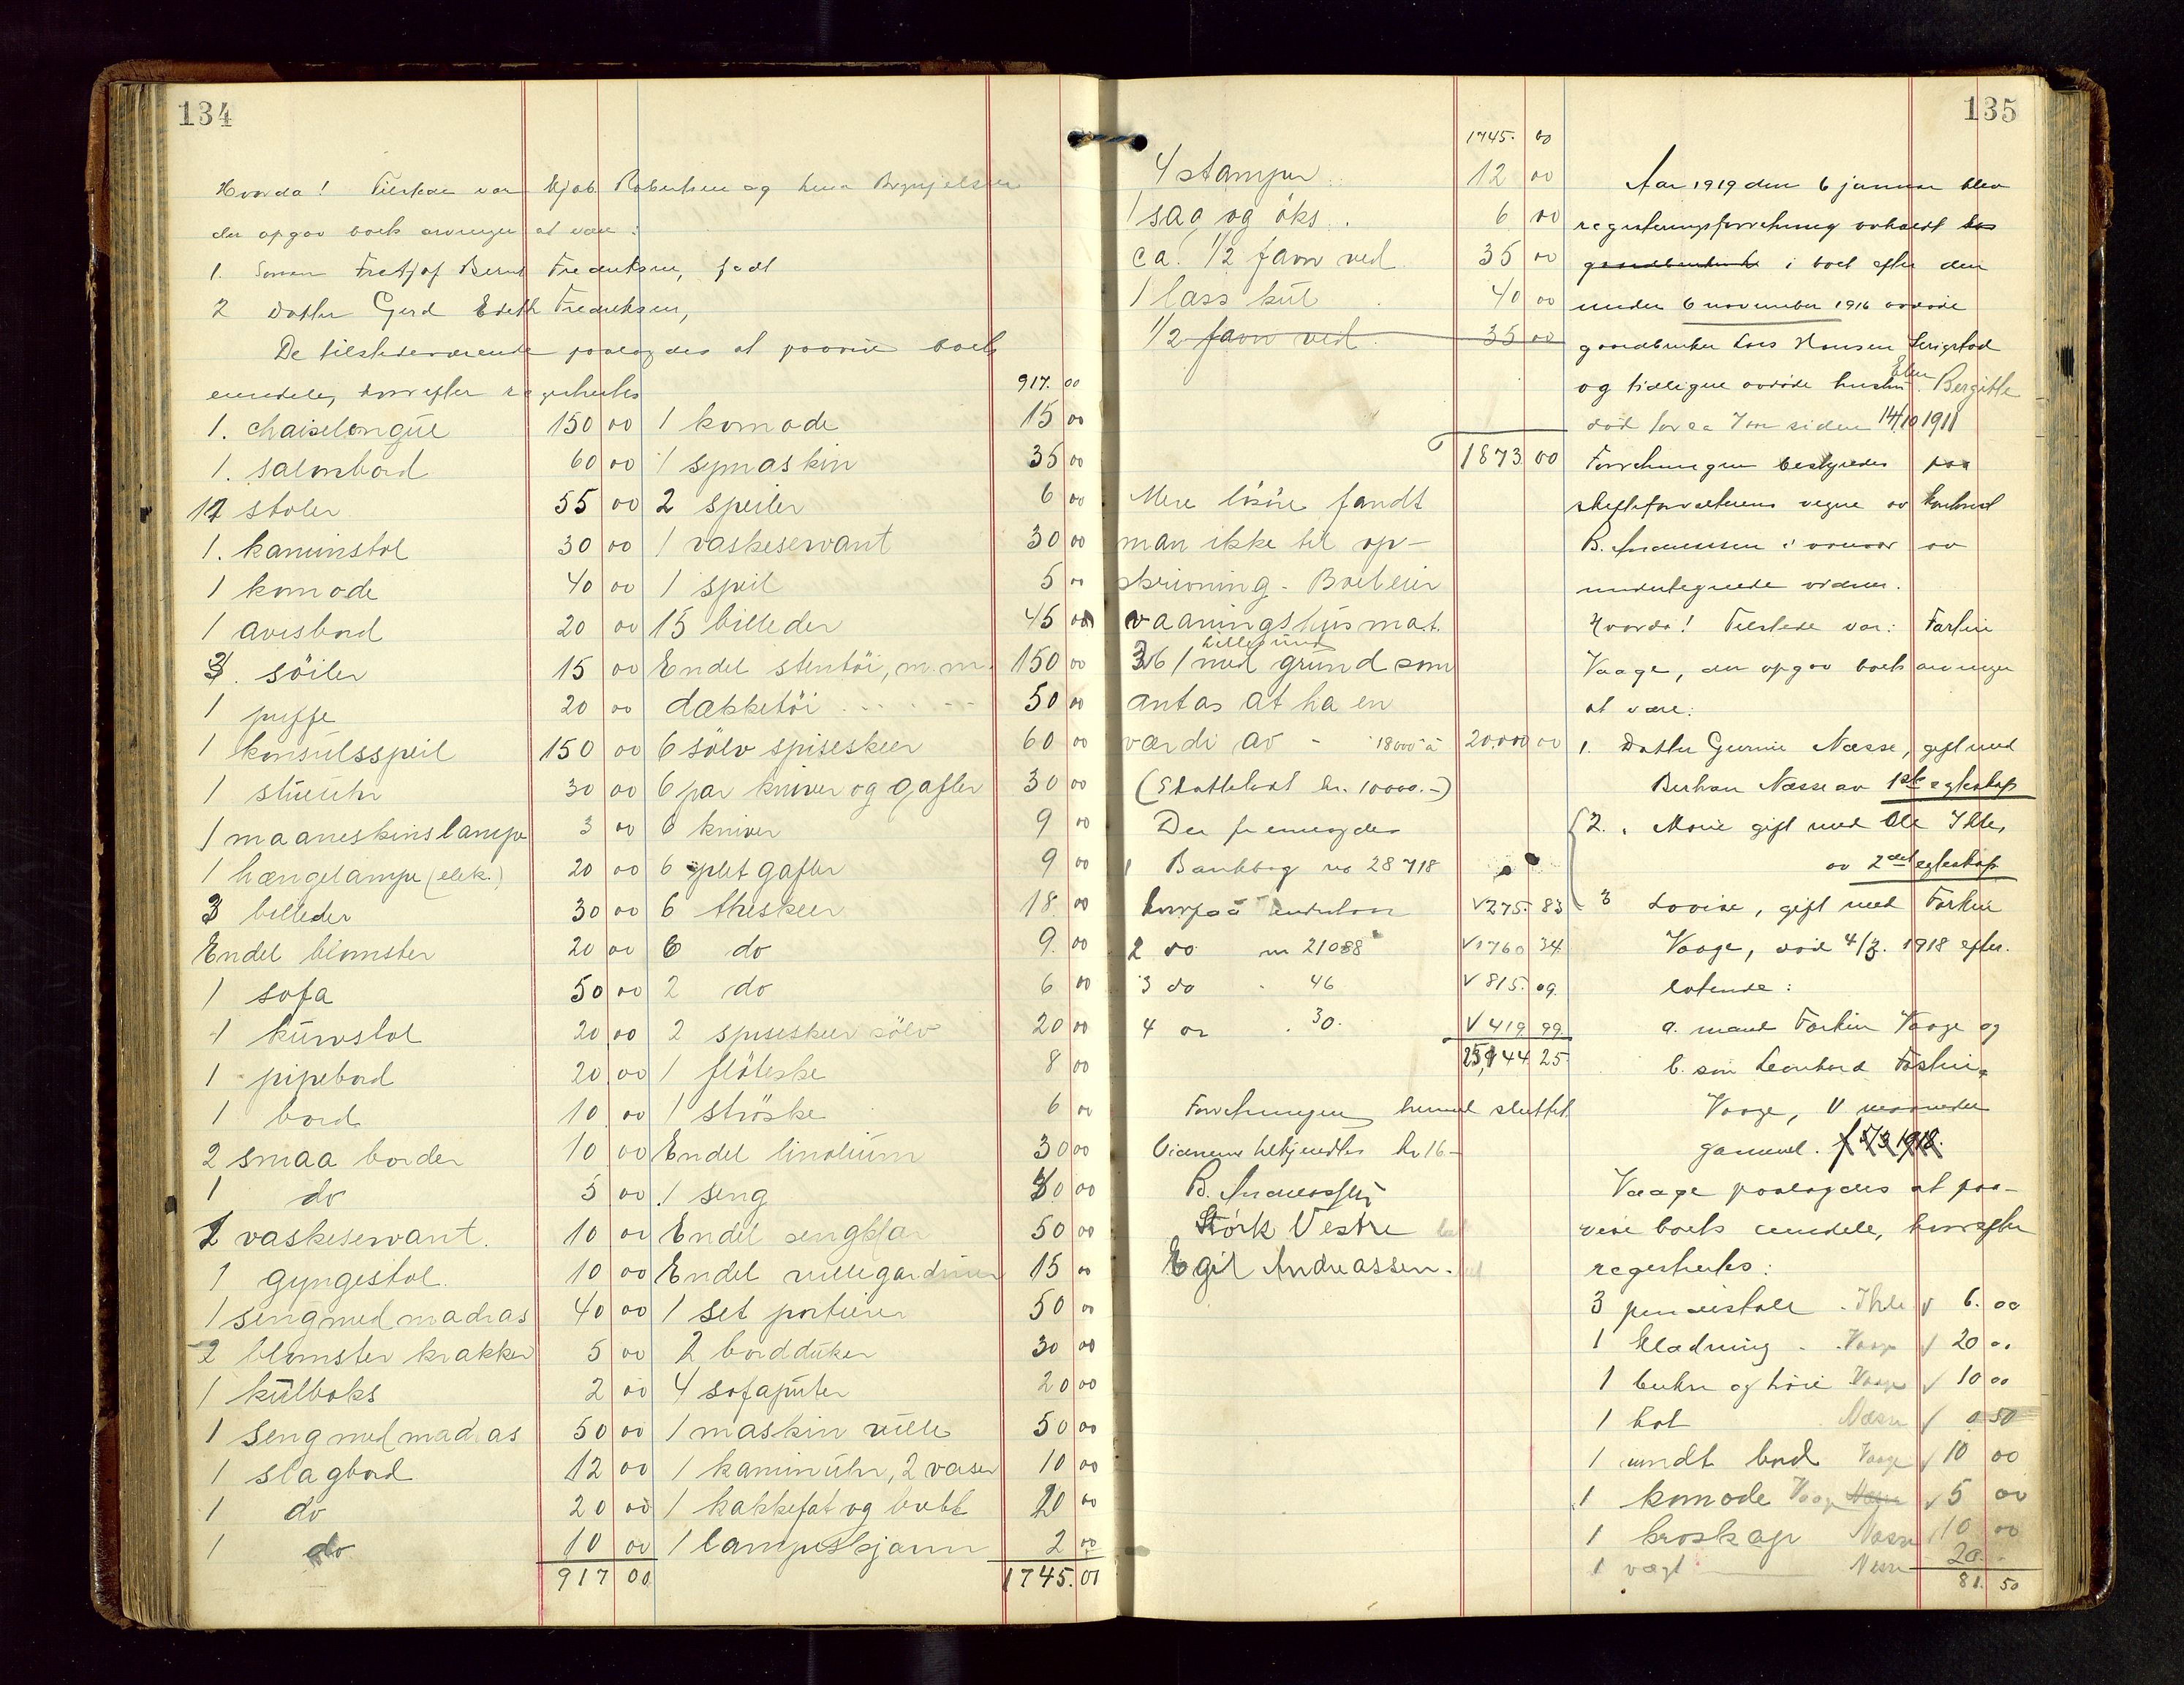 134
Hvorda! Tilstede var og
der opgav boets arvinger at være:
1. Sönnen Fredriksen, født
2 Datter Gerd Edith Fredriksen,
De tilstedeværende paalagdes at paavise boets
eiendele, hvorefter registrertes
1. chaiselongüe 150 00
1. salonbord 60 00
12 stoler 55 00
1. kaminstol 30 00
1 komode 40 00
1 avisbord 20 00
3. söiler 15 00
1 puffe 20 00
1 konsülsspeil 150 00
1 stueuhr 30 00
1 maaneskinslampe 3 00
1 hængelampe (elek.) 20 00
3 billeder 30 00
Endel blomster 20 00
1 sofa 50 00
1 kürvstol 20 00
1 pipebord 20 00
1 bord 10 00
2 smaa border 10 00
1 do 5 00
1 vaskeservant. 10 00
1 gyngestol. 10 00
1 seng med madras 40 00
2 blomster krakker 5 00
1 külboks 2 00
1 seng med madras 50 00
1 slagbord 12 00
1 do 20 00
1 do 10 00
917 00
917. 00
1 komode 15 00
1 symaskin 35 00
2 speiler 6 00
1 vaskeservant 30 00
1 speil 5 00
15 billeder 45 00
Endel stentöi, m.m. 150 00
dækketöi 50 00
6 sölv spiseskeer 60 00
6 par kniver og gafler 30 00
6 kniver 9 00
6 plet gafler 9 00
6 theskeer 18 00
6 do 9. 00
2 do 6 00
2 spiseskeer sölv 20 00
1 flöteske 8 00
1 ströske 6 00
Endel linolium 30 00
1 seng 30 00
Endel sengklær 50 00
Endel rullegardiner 15 00
1 set portierer 50 00
2 bordduker 30 00
4 sofapüter 20 00
1 maskin rülle 50 00
1 kaminühr, 2 vaser 10 00
1 kakkefat og bolle 20 00
1 lampeskjærm 2 00
1745. 00
1745. 00
4 stamper 12 00
1 sag og öks. 6 00
ca. 1/2 favn ved 35 00
1 lass kül 40 00
1/2 favn ved 35 00
1873 00
Mere lösöre fandt
man ikke til op-
skrivning. Boet eier
vaaningshüs mat.
36 / med grund som
antas at ha en
værdi av - 18000 à 20.000 00
(Skattetakst kr. 10000.-)
Der fremlagdes
1 Bankbog no 28718
hvorpaa indestaar 275. 83
2 do nr 21088 1760 34
3 do . 46 815. 09.
4 do . 30. 419. 99.
25,144 25
Forretningen hermed sluttet
Vidnerne betjendtes kr 16.-
B. Andreassen
Störk Vestre
Egil Andreassen.
135
Aar 1919 den 6 januar blev
registreringsforretning avholdt hos
gaardbruker i boet efter den
under 6 november 1916 avdøde
gaardbruker Lars Hansen
og tidligere avdöde hustru Ellen Bergitte
död for ca 7 aar siden 14/10 1911
Forretningen bestyredes paa
skifteforvalterens vegne av
B. Andreassen i nærvær av
undertegnede vidner.
Hvorda! Tilstede var:
Vaage, der opgav boets arvinger
at være:
1. Datter Gurine Næsse, gift med
Næsse av 1ste egteskap
2. Marie gift med Ole Ihle,
av 2det egteskap
3 Lovise, gift med
Vaage, död 4/3. 1918 efter-
latende:
a. mand Vaage og
b. sön Leonhard
Vaage, maaneder
gammel. f 5/3 1918.
Vaage paalagdes at paa-
vise boets eiendele, hvorefter
registrertes:
3 pindestole . Ihle 6. 00
1 klædning Vaage 20 00
1 bukse og tröie Vaage 10 00
1 hat Næsse 0 50
1 rundt bord Vaage 10 00
1 komode Vaage Næsse 5 00
1 kroskap Næsse 10 00
1 vægt Næsse 20.
81. 50